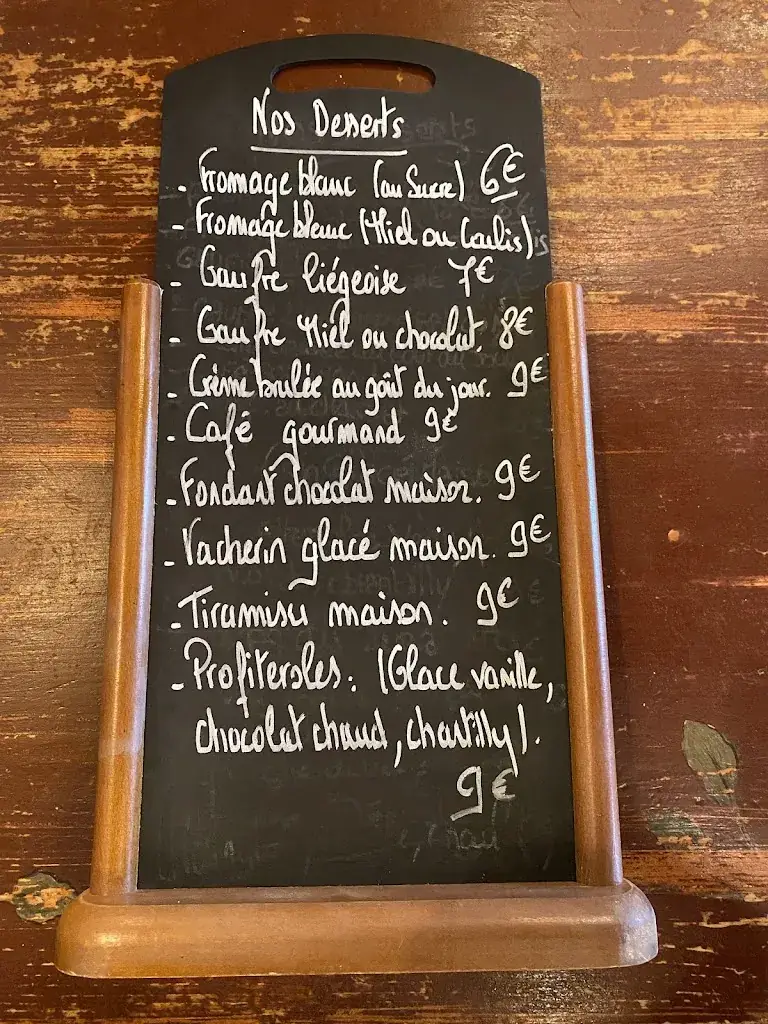 Nos Desserts
- Fromage blanc (au Sucre) 6€
- Fromage blanc (Miel ou Coulis)
- Gaufre liégeoise 7€
- Gaufre Miel ou chocolat. 8€
- Crème brulée au goût du jour. 9€
- Café gourmand 9€
- Fondant chocolat maison. 9€
- Vacherin glacé maison. 9€
- Tiramisu maison. 9€
- Profiteroles: (Glace vanille,
chocolat chaud, chantilly).
9€